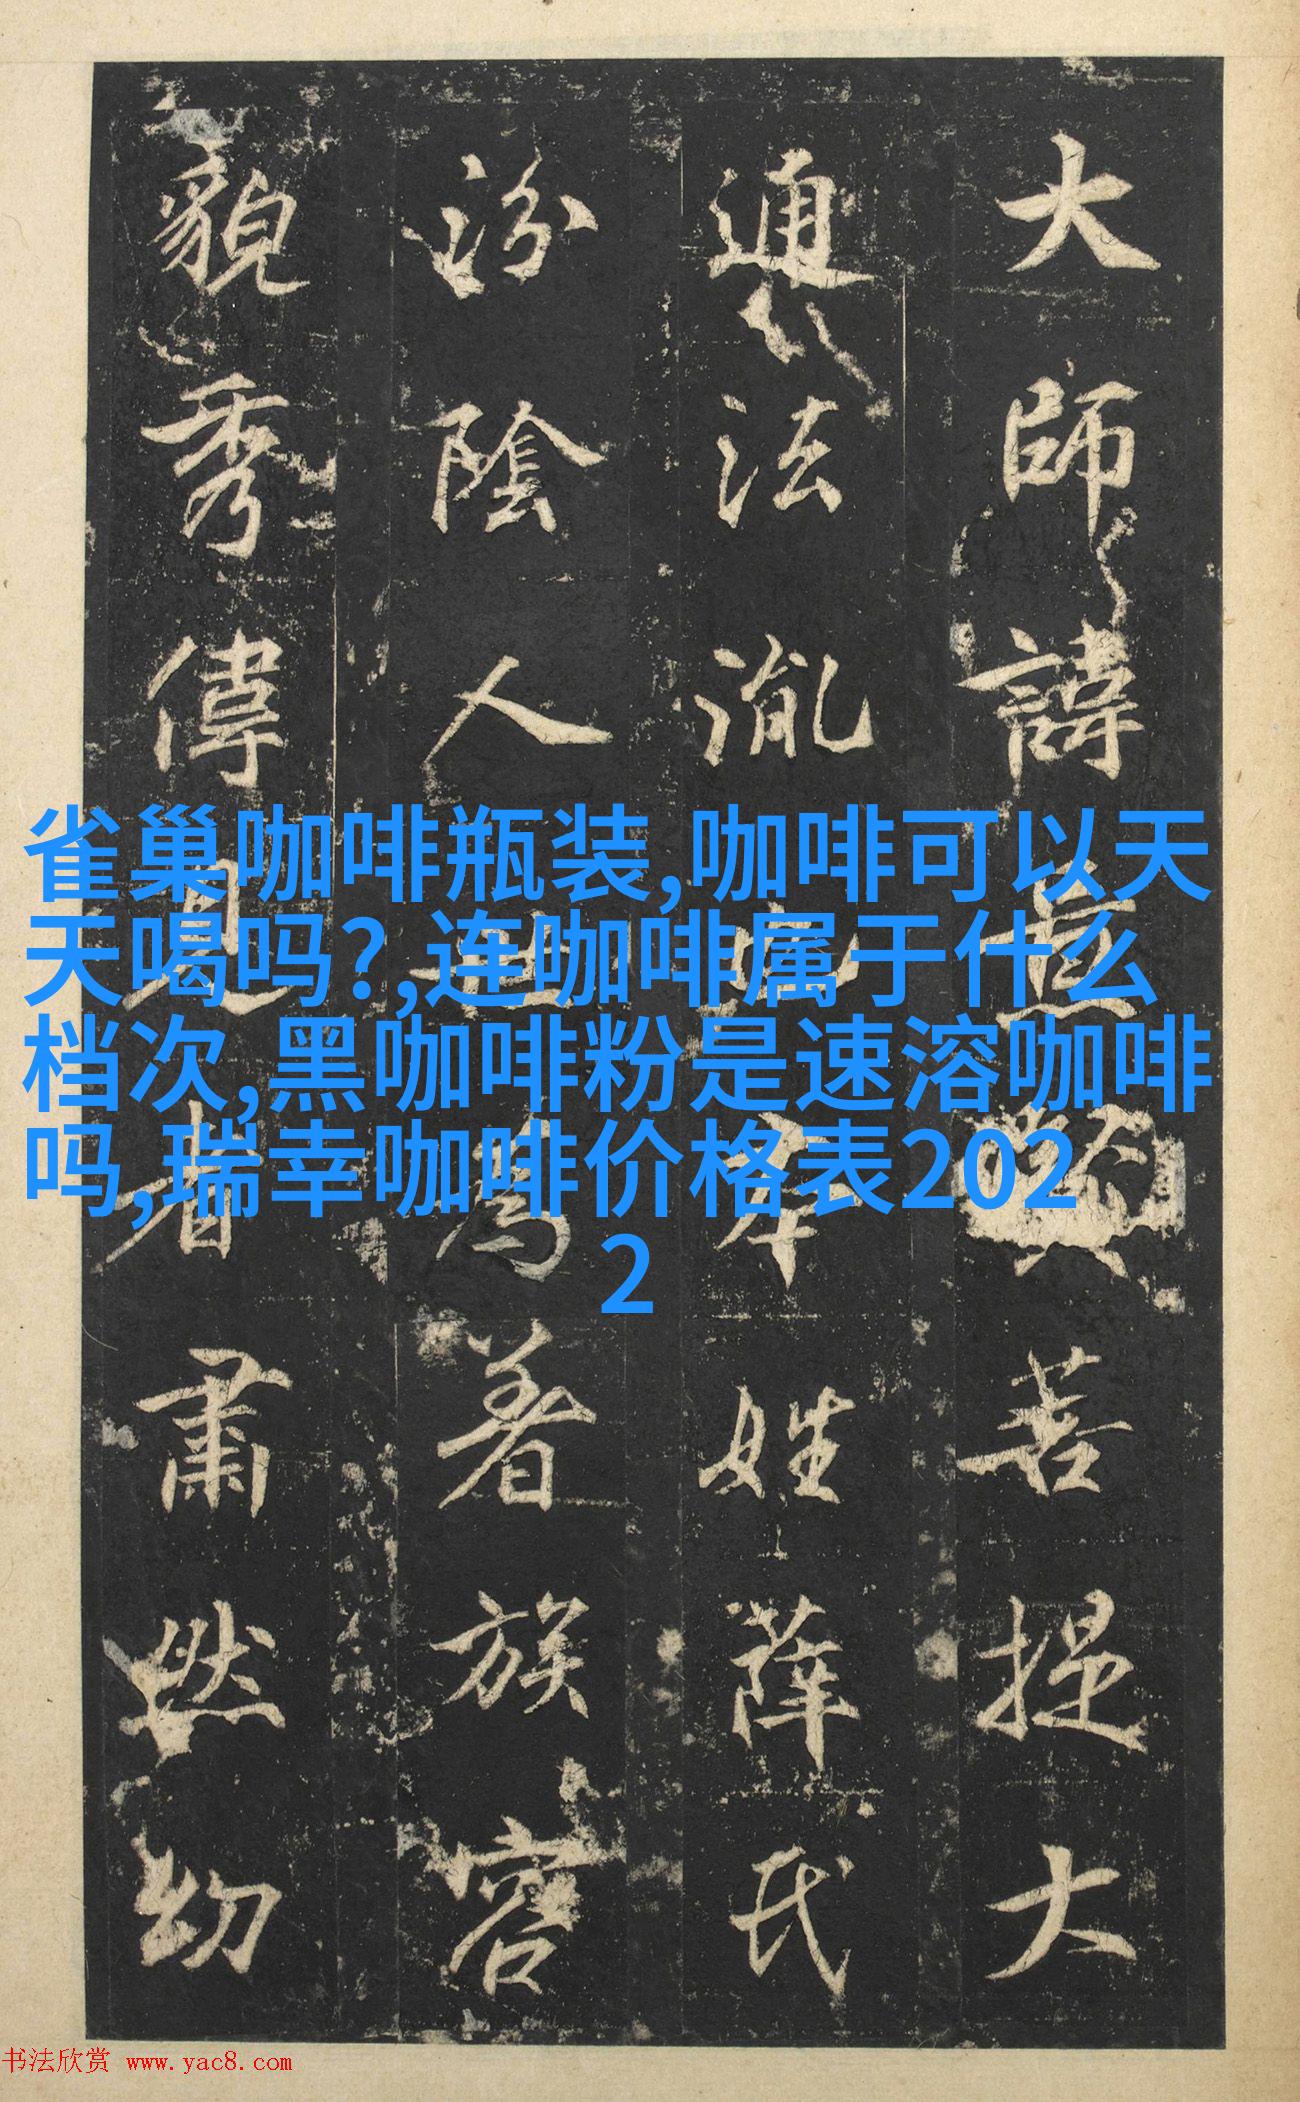 大師諱菩提大
通法本姓薛氏
汾陰人世為著族容
貌秀偉見者肅然幼
雀巢咖啡瓶装,咖啡可以天
天喝吗?,连咖啡属于什么
档次,黑咖啡粉是速溶咖啡
吗,瑞幸咖啡价格表202
2
书法欣赏 www.yac8.com